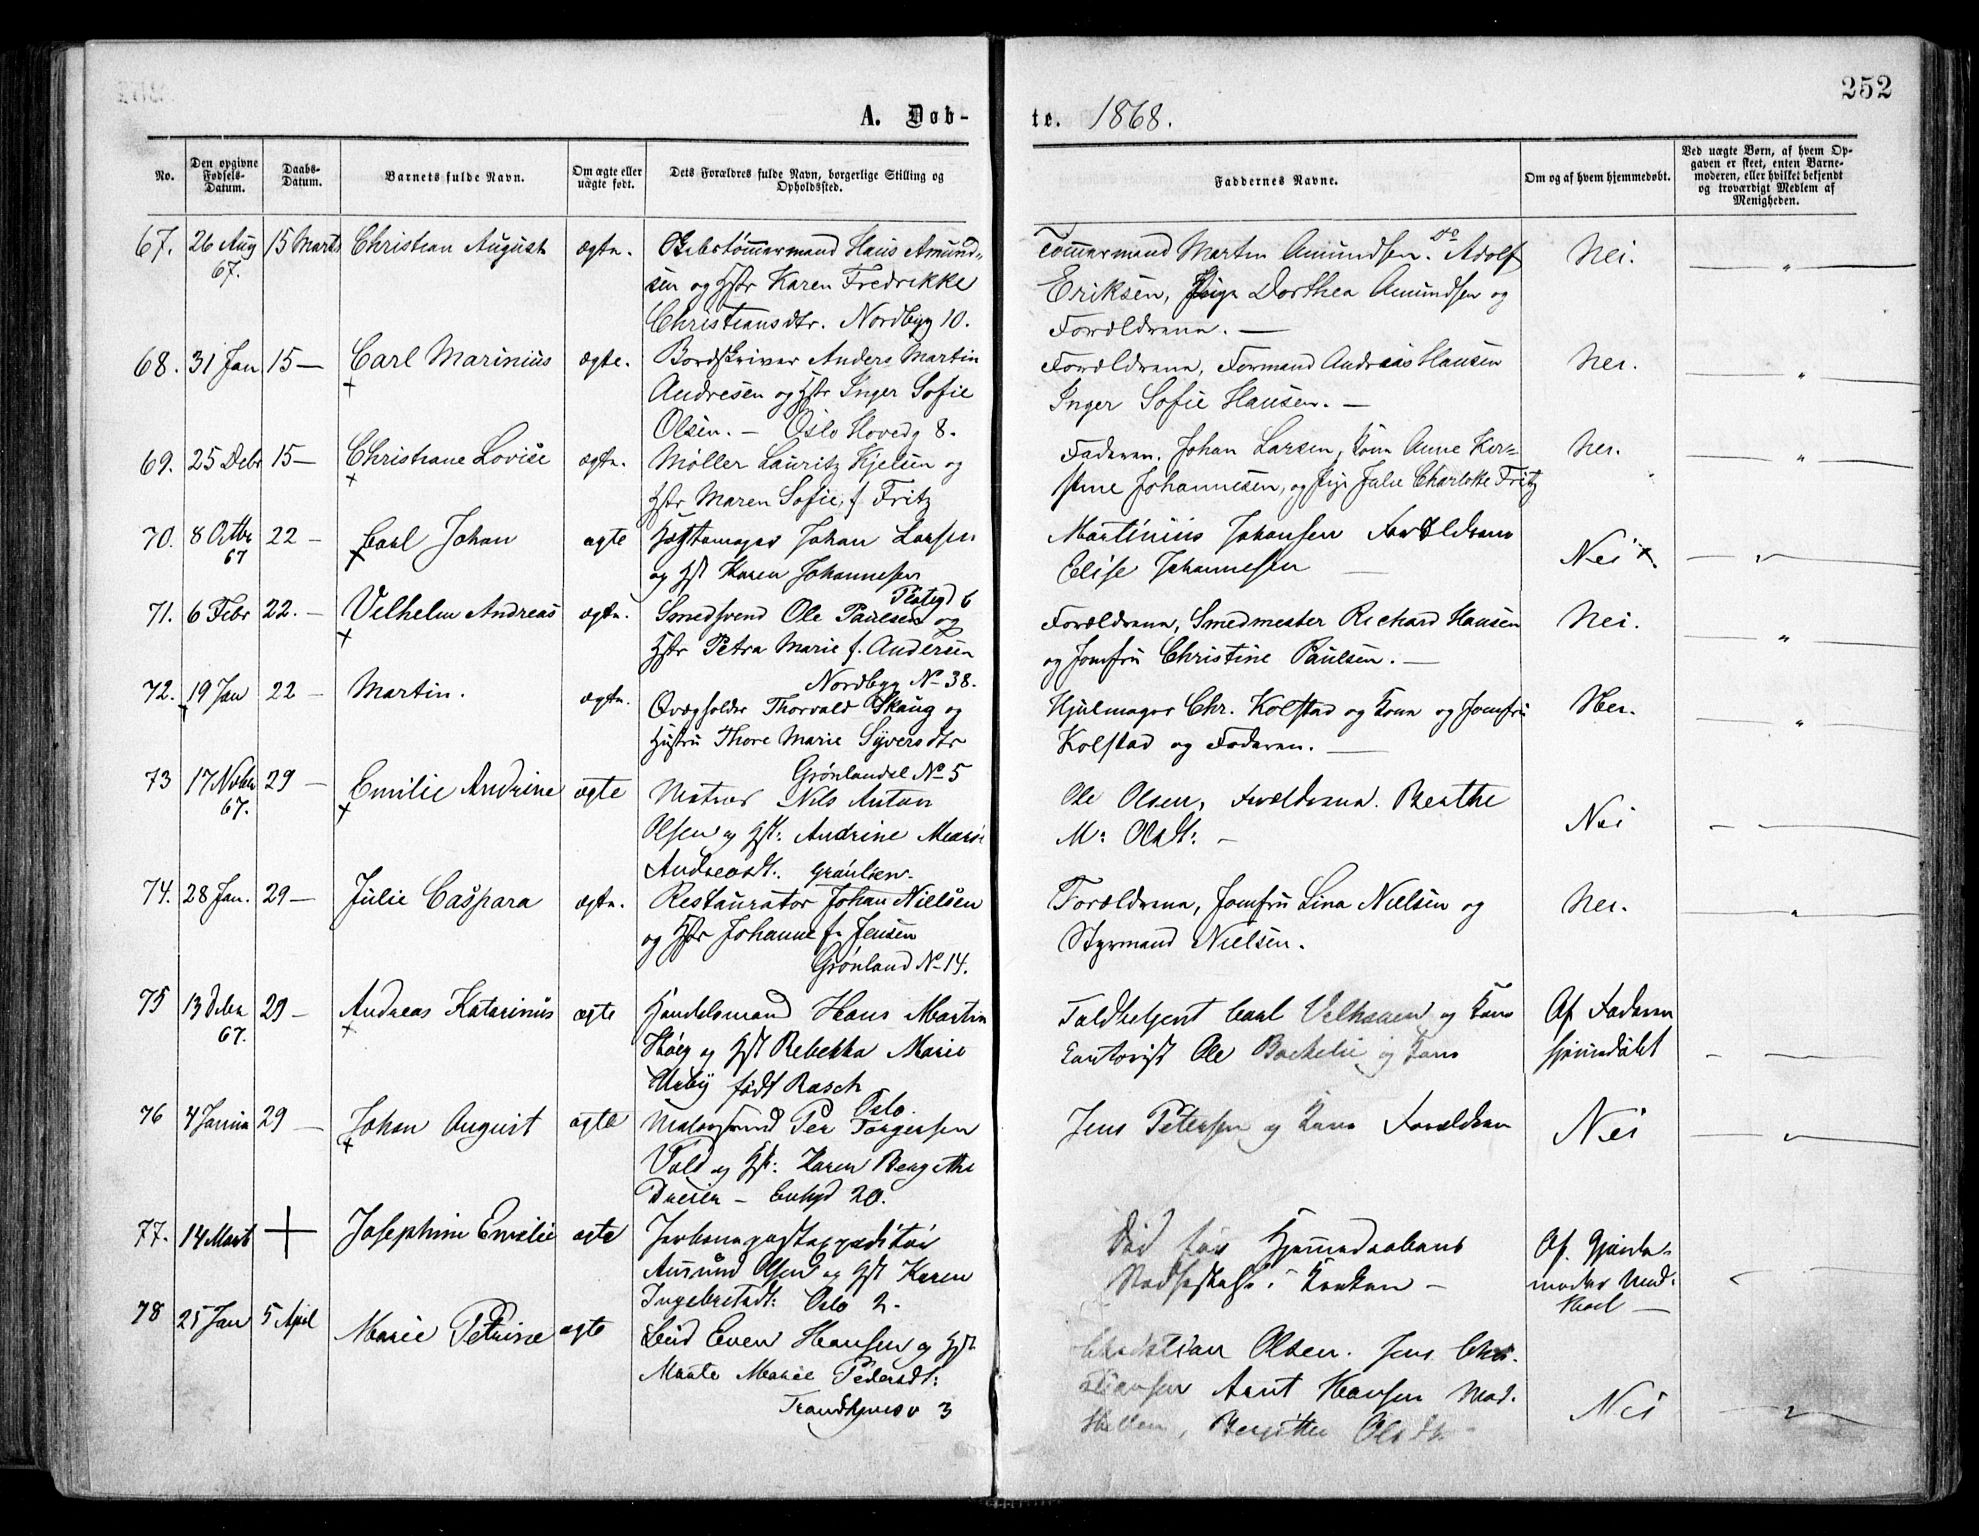 252
A. Døb-
te. 1868.
No.
Den opgivne Fødsels-Datum.
Daabs-Datum.
Barnets fulde Navn.
Om ægte eller uægte født.
Dets Forældres fulde Navn, borgerlige Stilling og Opholdssted.
Faddernes Navne.
Om og af hvem hjemmedøbt.
Ved uægte Børn, af hvem Op-
gaven er skeet, enten Barne-
moderen, eller hvilket bekjendt
og troværdigt Medlem af
Menigheden.
67. 26 Aug 15 Marts Christian August ægte. Skibstømmermand Hans Amund-
67.
sen og Hstr Karen Fredrikke
Christiansdtr. Nordbyg 10.
Tømmermand Martin Amundsen. Do Adolf Nei.
Eriksen, Pige Dorthea Amundsen og
Forældrene. —
68. 31 Jan 15 — Carl Marinius ægte. Bordskriver Anders Martin
Andresen og Hstr Inger Sofie
Olsen. — Oslo Hovedg 8.
Forældrene, Formand Andreas Hansen Nei.
Inger Sofie Hansen. —
69. 25 Debr 15 — Christiane Lovise ægte. Møller Lauritz Kjelsen og
Hstr Maren Sofie, f. Fritz
Faderen. Johan Larsen, Kone Anne Kir- Nei.
stine Johannesen, og Pige Julie Charlotte Fritz
70. 8 Octbr 22 — Carl Johan ægte Johan Larsen
67
og Hst Karen Johannesen
Martinius Johansen Forældrene
Elise Johannesen — Nei
71. 6 Febr 22. — Vilhelm Andreas ægte. Smedsvend Ole Paulsen og
Hstr Petra Marie f. Andersen
Nordbyg No 38.
Forældrene, Smedmester Richard Hansen Nei.
og Jomfru Christine Paulsen. —
72. 19 Jan 22 — Martin. ægte. Qvægholder Thorvald Skaug og
Hustru Thore Marie Syversdtr
Grønlandsl No 5
Hjulmager Chr. Kolstad og Kone og Jomfru Nei.
Kolstad og Faderen. —
73 17 Novbr 29 — Emilie Andrine ægte Matros Nils Anton
67.
Olsen og Hst: Andrine Marie
Andreasdt.
Ole Olsen, Forældrene. Berthe
M: Olsdt: — Nei
74. 28 Jan. 29 — Julie Caspara ægte. Restaurator Johan Nielsen
og Hstr Johanne f. Jensen
Grønland No 14.
Forældrene, Jomfru Lina Nielsen og Nei.
Styrmand Nielsen.
75 13 Debr 29 — Andreas Katarinus ægte Handelsmand Hans Martin
67.
og Hst Rebekka Marie
født Rasch
Oslo.
Carl Velhaven og Kone Af Faderen
Ole og Kone hjemmedøbt
76 4 Januar 29 — Johan August ægte Malersvend Per Torgersen
Vold og Hst: Karen Bergithe
— 20.
Jens Petersen og Kone Forældrene Nei
77. 14 Marts + Josephine Emilie ægte Jernbanepostexpeditør
Amund Olsen og Hst Karen
Ingebretsdt: Oslo 2.
Død før
i Kirken — Af
moder Mad:
78 25 Jan 5 April Marie Petrine ægte Even Hansen og Hst
Marte Marie Pedersdt:
3
Christian Olsen. Jens Chri-
stiansen Arnt Hansen Mad. Nei
Berthe Olsdt.